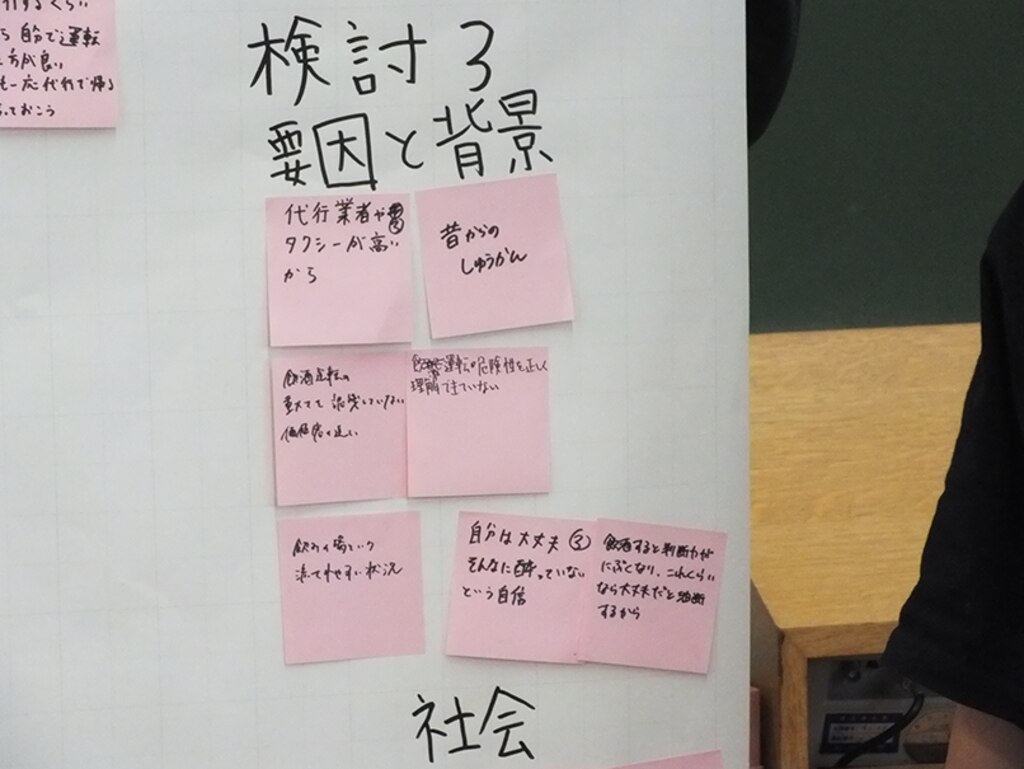 自分で運転
方が良い
も一応代行で帰る
っておこう
検討3
要因と背景
代行業者や
タクシーが高い
から
昔からの
しゅうかん
飲酒運転の
重大さを認識していない
飲酒運転の危険性を正しく
理解できていない
飲みの場という
流されやすい状況
自分は大丈夫 ③
そんなに酔っていない
という自信
飲酒すると判断力が
にぶくなり、これくらい
なら大丈夫だと
するから
社会